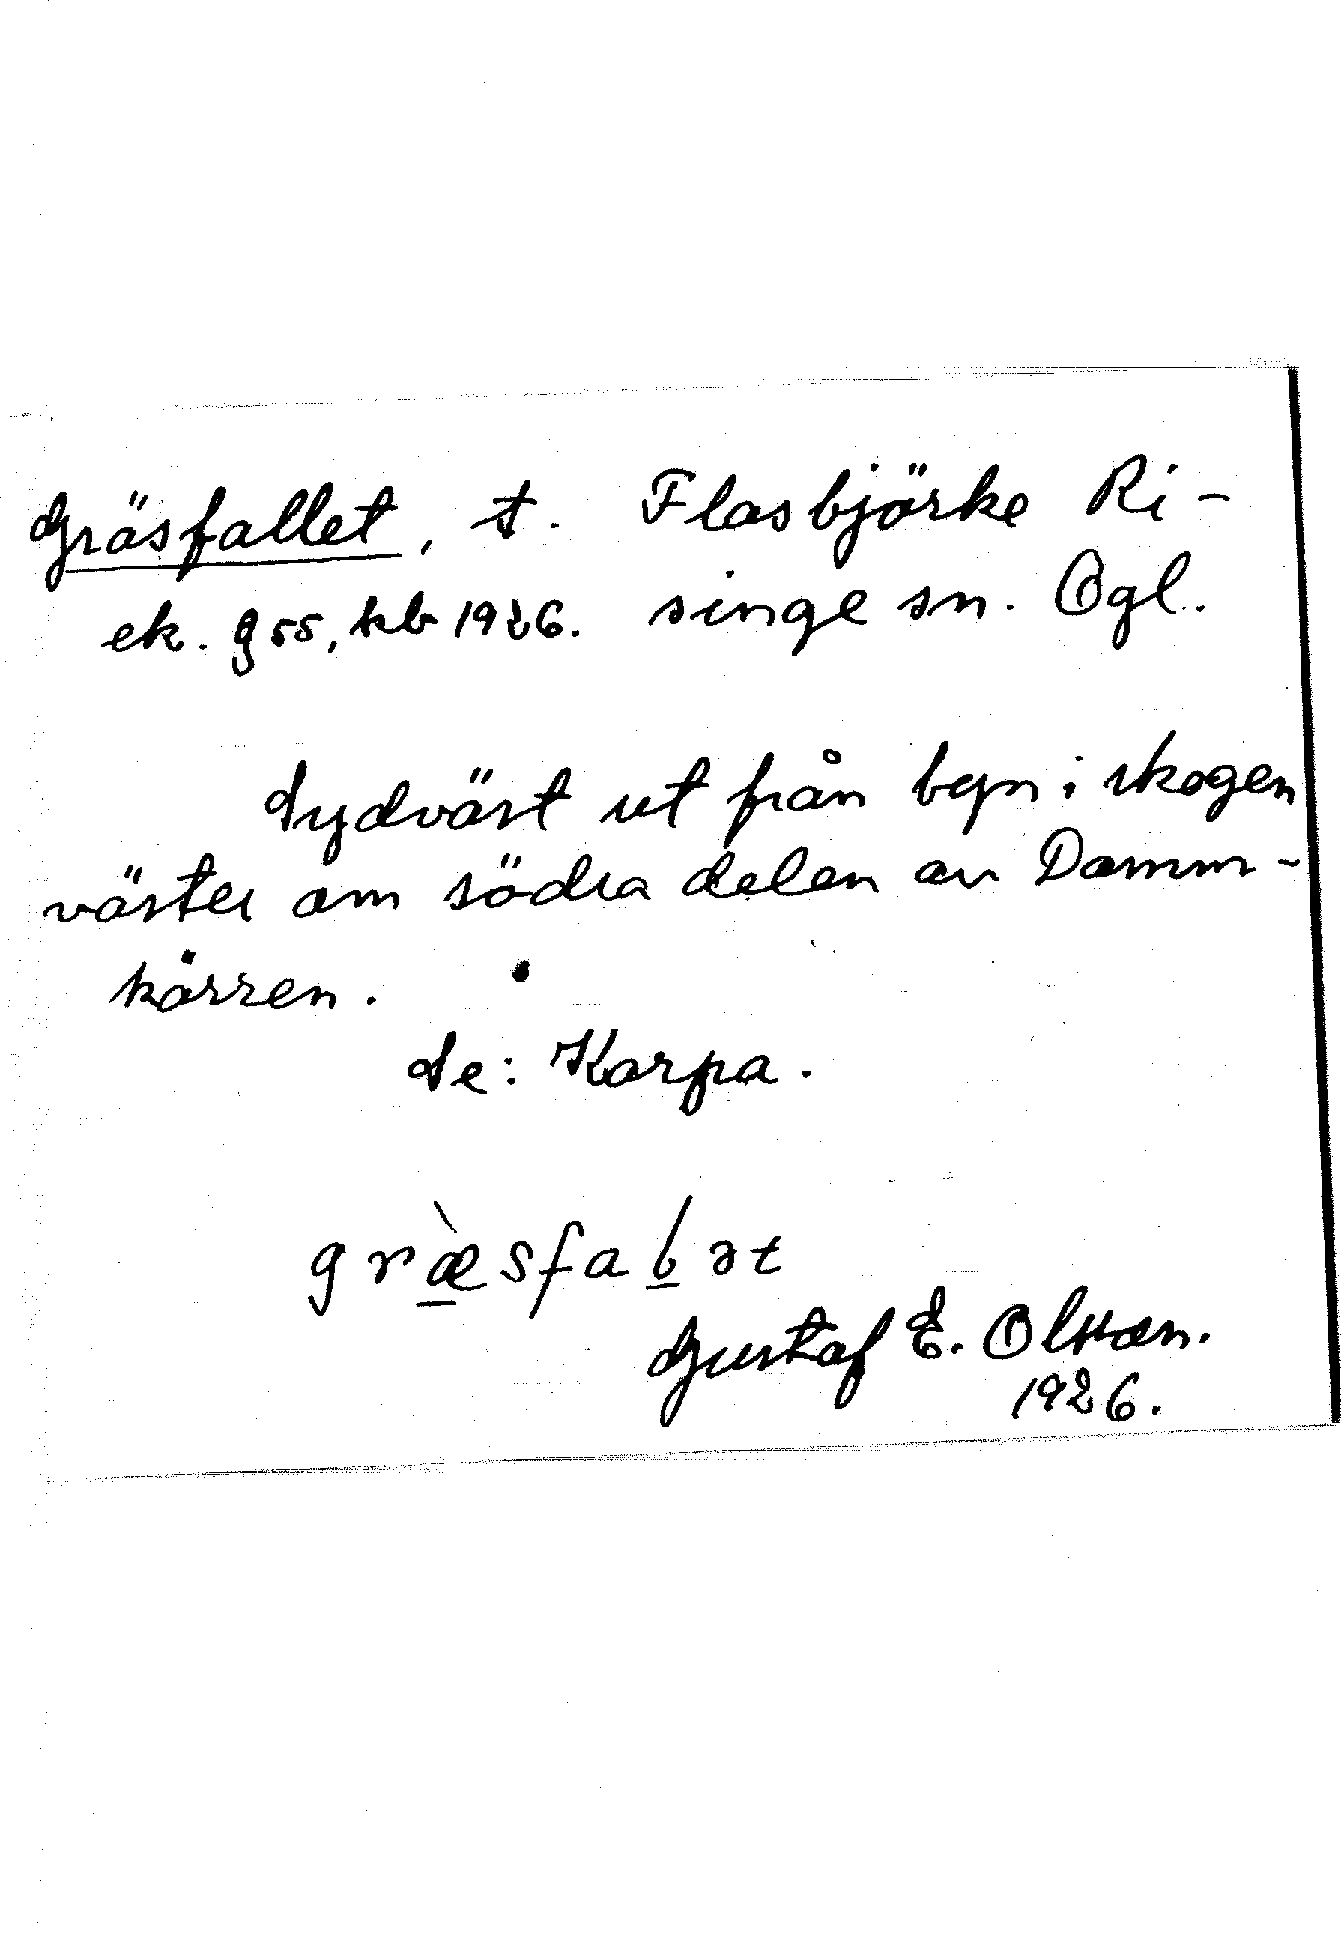 Gräsfallet, t. Flasbjörke Ri-
ek. g 55, hb 1926. singe sn. Ögl.
Sydväst ut från byn i skogen
väster om södra delen av Damm-
kärren.
Se: Karpa.
græ̀sfaƀət
Gustaf E. Olsson.
1926.